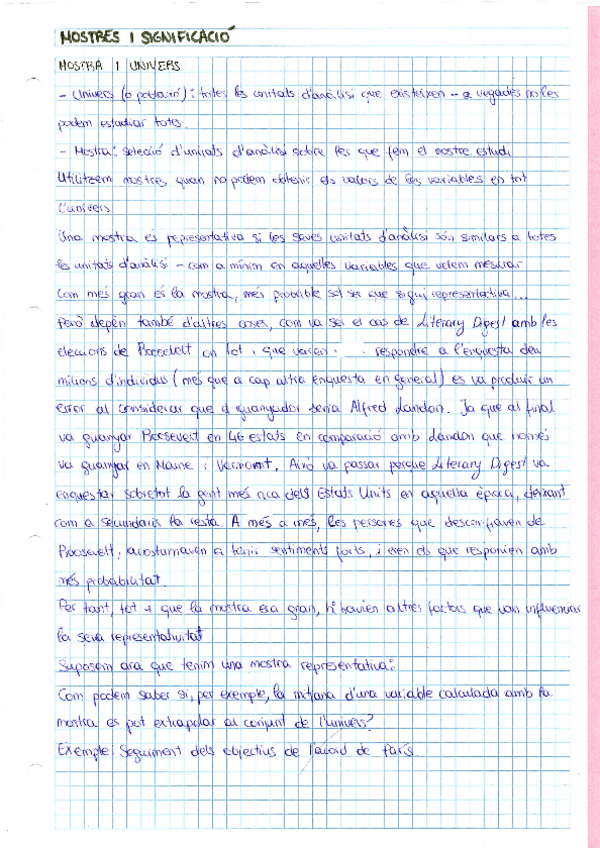 MOSTRES I SIGNIFICACIÓ
MOSTRA I UNIVERS
- Univers (o població): totes les unitats d'anàlisi que existeixen - a vegades no les
podem estudiar totes.
- Mostra: selecció d'unitats d'anàlisi sobre les que fem el nostre estudi
Utilitzem mostres quan no podem obtenir els valors de les variables en tot
l'univers
Una mostra és representativa si les seves unitats d'anàlisi són similars a totes
les unitats d'anàlisi - com a mínim en aquelles variables que volem mesurar
Com més gran és la mostra, més probable sol ser que sigui representativa...
Però depèn també d'altres coses, com va ser el cas de Literary Digest amb les
eleccions de Roosevelt on tot i que varen respondre a l'enquesta deu
milions d'individus (més que a cap altra enquesta en general) es va produir un
error al considerar que el guanyador seria Alfred Landon. Ja que al final
va guanyar Roosevelt en 46 estats en comparació amb Landon que només
va guanyar en Maine i Vermont. Això va passar perque Literary Digest va
enquestar sobretot la gent més rica dels Estats Units en aquella època, deixant
com a secundaris la resta. A més a més, les persones que desconfiaven de
Roosevelt, acostumaven a tenir sentiments forts, i eren els que responien amb
més probabilitat.
Per tant, tot i que la mostra era gran, hi havien altres factors que van influenciar
la seva representativitat
Suposem ara que tenim una mostra representativa:
Com podem saber si, per exemple, la mitjana d'una variable calculada amb la
mostra es pot extrapolar al conjunt de l'univers?
Exemple: Seguiment dels objectius de l'acord de París.